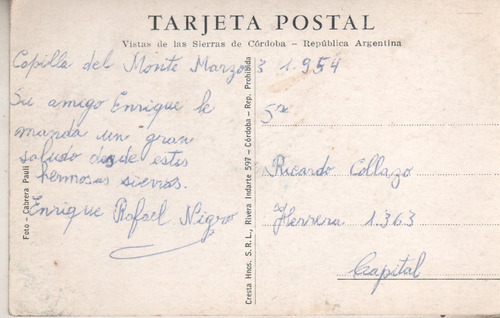 TARJETA POSTAL
Vistas de las Sierras de Córdoba – República Argentina
Capilla del Monte Marzo 3 1.954
Su amigo Enrique le
manda un gran
saludo desde estas
hermosas sierras.
Enrique Rafael Nigro
Foto – Cabrera Pauli
Cresta Hnos. S. R. L., Rivera Indarte 597 – Córdoba – Rep. Prohibida
Sr
Ricardo Collazo
Herrera 1.363
Capital